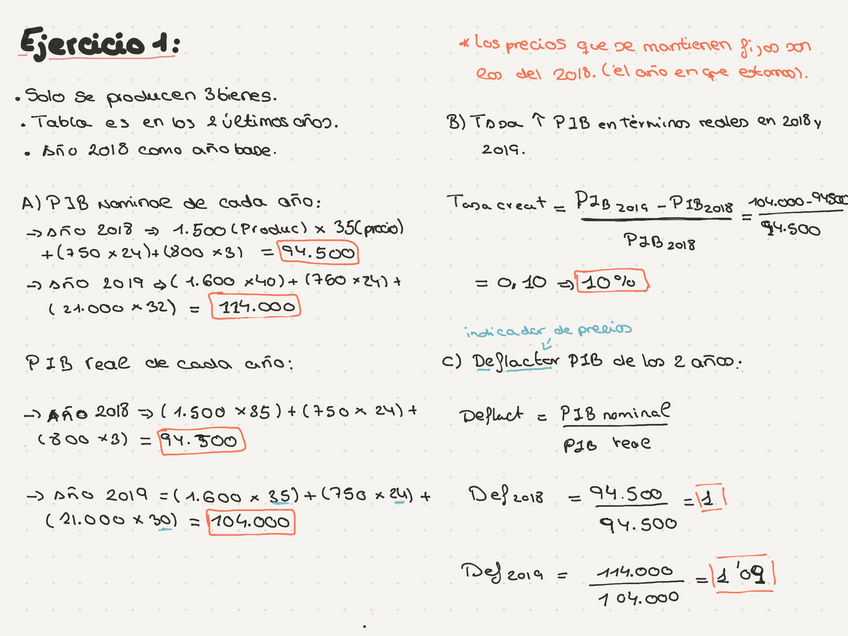 Ejercicio 1:
• Solo se producen 3 bienes.
• Tabla es en los 2 últimos años.
• Año 2018 como año base.
A) PIB Nominal de cada año:
→ Año 2018 → 1.500 (Produc) x 35 (precio)
+ (750 x 24) + (800 x 3) = 94.500
→ Año 2019 → (1.600 x 40) + (760 x 24) +
(21.000 x 32) = 114.000
PIB real de cada año:
→ Año 2018 ⇒ (1.500 x 35) + (750 x 24) +
(800 x 3) = 94.500
→ Año 2019 = (1.600 x 35) + (750 x 24) +
(21.000 x 30) = 104.000
* Los precios que se mantienen fijos son
los del 2018. (el año en que estamos).
B) Tasa ↑ PIB en términos reales en 2018 y
2019.
Tasa creat = PIB 2019 - PIB 2018 / PIB 2018 = 104.000 - 94500 / 94.500
= 0,10 ⇒ 10%
indicador de precios
C) Deflactor PIB de los 2 años:
Deflact = PIB nominal / PIB real
Def 2018 = 94.500 / 94.500 = 1
Def 2019 = 114.000 / 104.000 = 1'09